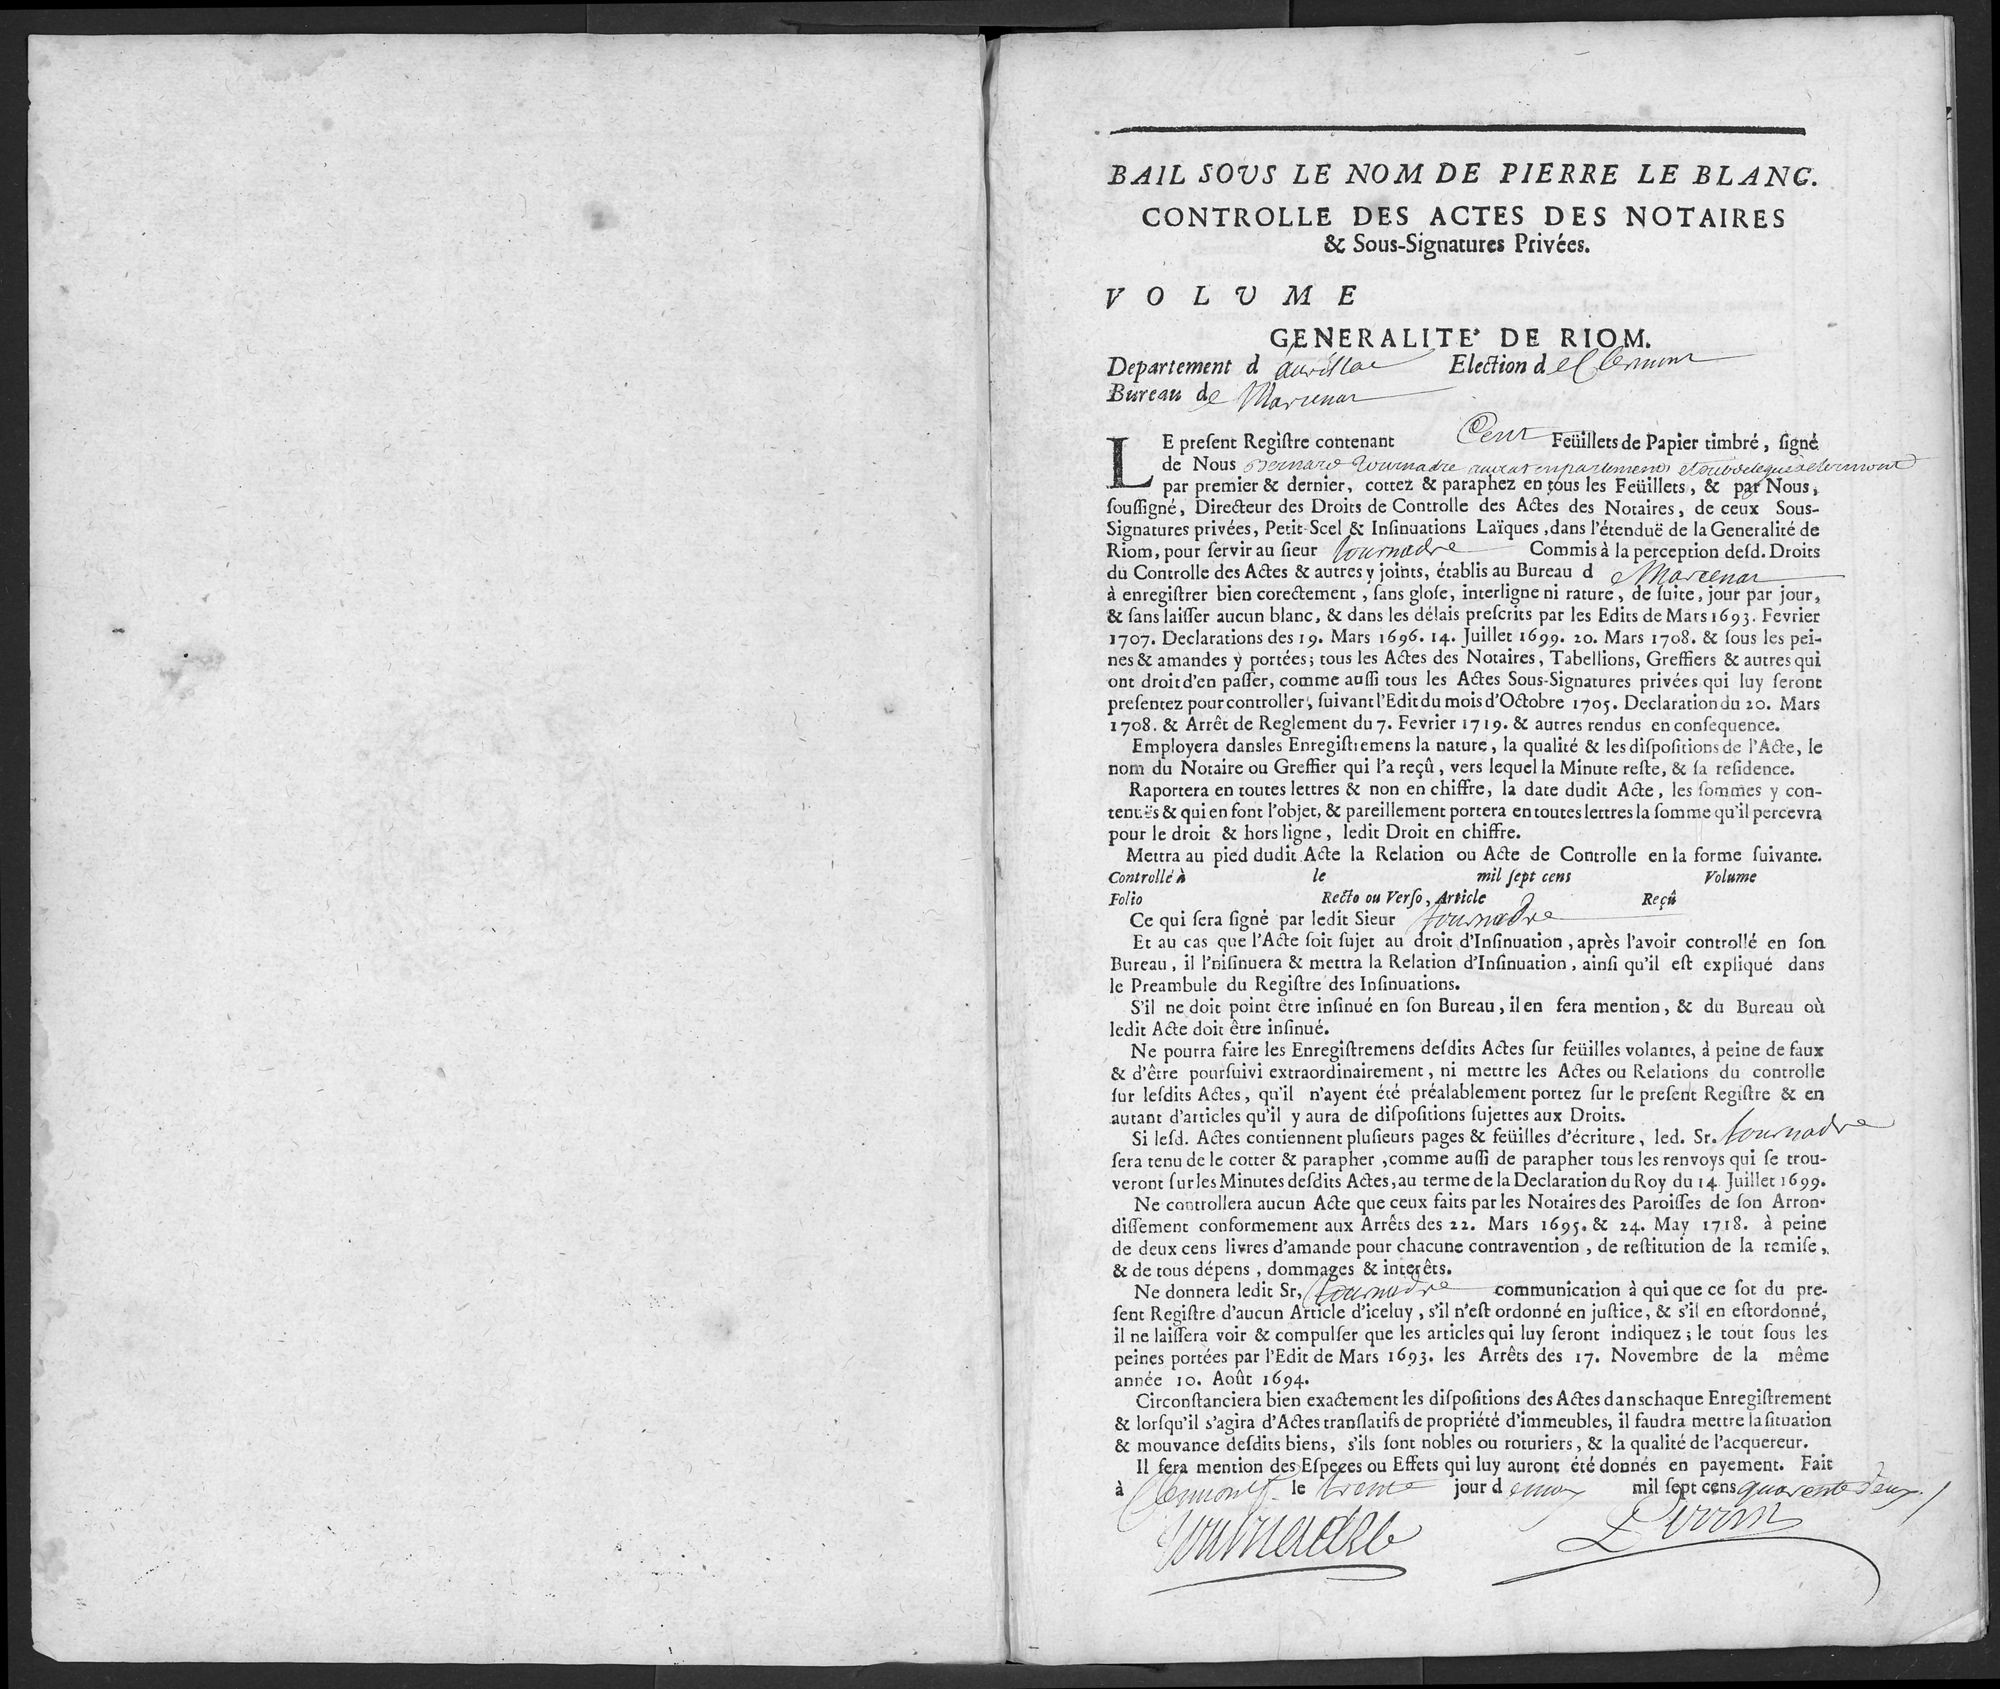 BAIL SOUS LE NOM DE PIERRE LE BLANC.
CONTROLLE DES ACTES DES NOTAIRES
& Sous-Signatures Privées.
VOLUME
GENERALITE' DE RIOM.
Departement d aurillac Election d e Clermont
Bureau de Marcenat
LE preſent Regiſtre contenant Cent Feüillets de Papier timbré, ſigné
de Nous Bernard Tournadre avocat en parlement et subdelegué a Clermont
par premier & dernier, cottez & paraphez en tous les Feüillets, & par Nous,
ſouſſigné, Directeur des Droits de Controlle des Actes des Notaires, de ceux Sous-
Signatures privées, Petit-Scel & Inſinuations Laïques, dans l'étenduë de la Generalité de
Riom, pour ſervir au ſieur tournadre Commis à la perception deſd. Droits
du Controlle des Actes & autres y joints, établis au Bureau d e Marcenat
à enregiſtrer bien corectement, ſans gloſe, interligne ni rature, de ſuite, jour par jour,
& ſans laiſſer aucun blanc, & dans les délais preſcrits par les Edits de Mars 1693. Fevrier
1707. Declarations des 19. Mars 1696. 14. Juillet 1699. 20. Mars 1708. & ſous les pei-
nes & amandes y portées; tous les Actes des Notaires, Tabellions, Greffiers & autres qui
ont droit d'en paſſer, comme auſſi tous les Actes Sous-Signatures privées qui luy ſeront
preſentez pour controller, ſuivant l'Edit du mois d'Octobre 1705. Declaration du 20. Mars
1708. & Arrêt de Reglement du 7. Fevrier 1719. & autres rendus en conſequence.
Employera dansles Enregiſtremens la nature, la qualité & les diſpoſitions de l'Acte, le
nom du Notaire ou Greffier qui l'a reçû, vers lequel la Minute reſte, & ſa reſidence.
Raportera en toutes lettres & non en chiffre, la date dudit Acte, les ſommes y con-
tenuës & qui en font l'objet, & pareillement portera en toutes lettres la ſomme qu'il percevra
pour le droit & hors ligne, ledit Droit en chiffre.
Mettra au pied dudit Acte la Relation ou Acte de Controlle en la forme ſuivante.
Controllé à le mil ſept cens Volume
Folio Recto ou Verſo, Article Reçû
Ce qui ſera ſigné par ledit Sieur tournadre
Et au cas que l'Acte ſoit ſujet au droit d'Inſinuation, après l'avoir controllé en ſon
Bureau, il l'niſinuera & mettra la Relation d'Inſinuation, ainſi qu'il eſt expliqué dans
le Preambule du Regiſtre des Inſinuations.
S'il ne doit point être inſinué en ſon Bureau, il en fera mention, & du Bureau où
ledit Acte doit être inſinué.
Ne pourra faire les Enregiſtremens deſdits Actes ſur feüilles volantes, à peine de faux
& d'être pourſuivi extraordinairement, ni mettre les Actes ou Relations du controlle
ſur leſdits Actes, qu'il n'ayent été préalablement portez ſur le preſent Regiſtre & en
autant d'articles qu'il y aura de diſpoſitions ſujettes aux Droits.
Si leſd. Actes contiennent pluſieurs pages & feüilles d'écriture, led. Sr. tournadre
ſera tenu de le cotter & parapher, comme auſſi de parapher tous les renvoys qui ſe trou-
veront ſur les Minutes deſdits Actes, au terme de la Declaration du Roy du 14 Juillet 1699.
Ne controllera aucun Acte que ceux faits par les Notaires des Paroiſſes de ſon Arron-
diſſement conformement aux Arrêts des 22. Mars 1695. & 24. May 1718. à peine
de deux cens livres d'amande pour chacune contravention, de reſtitution de la remiſe,
& de tous dépens, dommages & interêts.
Ne donnera ledit Sr, tournadre communication à qui que ce ſot du pre-
ſent Regiſtre d'aucun Article d'iceluy, s'il n'eſt ordonné en juſtice, & s'il en eſtordonné,
il ne laiſſera voir & compulſer que les articles qui luy ſeront indiquez; le tout ſous les
peines portées par l'Edit de Mars 1693. les Arrêts des 17. Novembre de la même
année 10. Août 1694.
Circonſtanciera bien exactement les diſpoſitions des Actes danschaque Enregiſtrement
& lorſqu'il s'agira d'Actes tranſlatifs de propriété d'immeubles, il faudra mettre la ſituation
& mouvance deſdits biens, s'ils ſont nobles ou roturiers, & la qualité de l'acquereur.
Il fera mention des Eſpeces ou Effets qui luy auront été donnés en payement. Fait
à Clermont le trente jour d e may mil ſept cens quarente deux
Tournadre Perrin